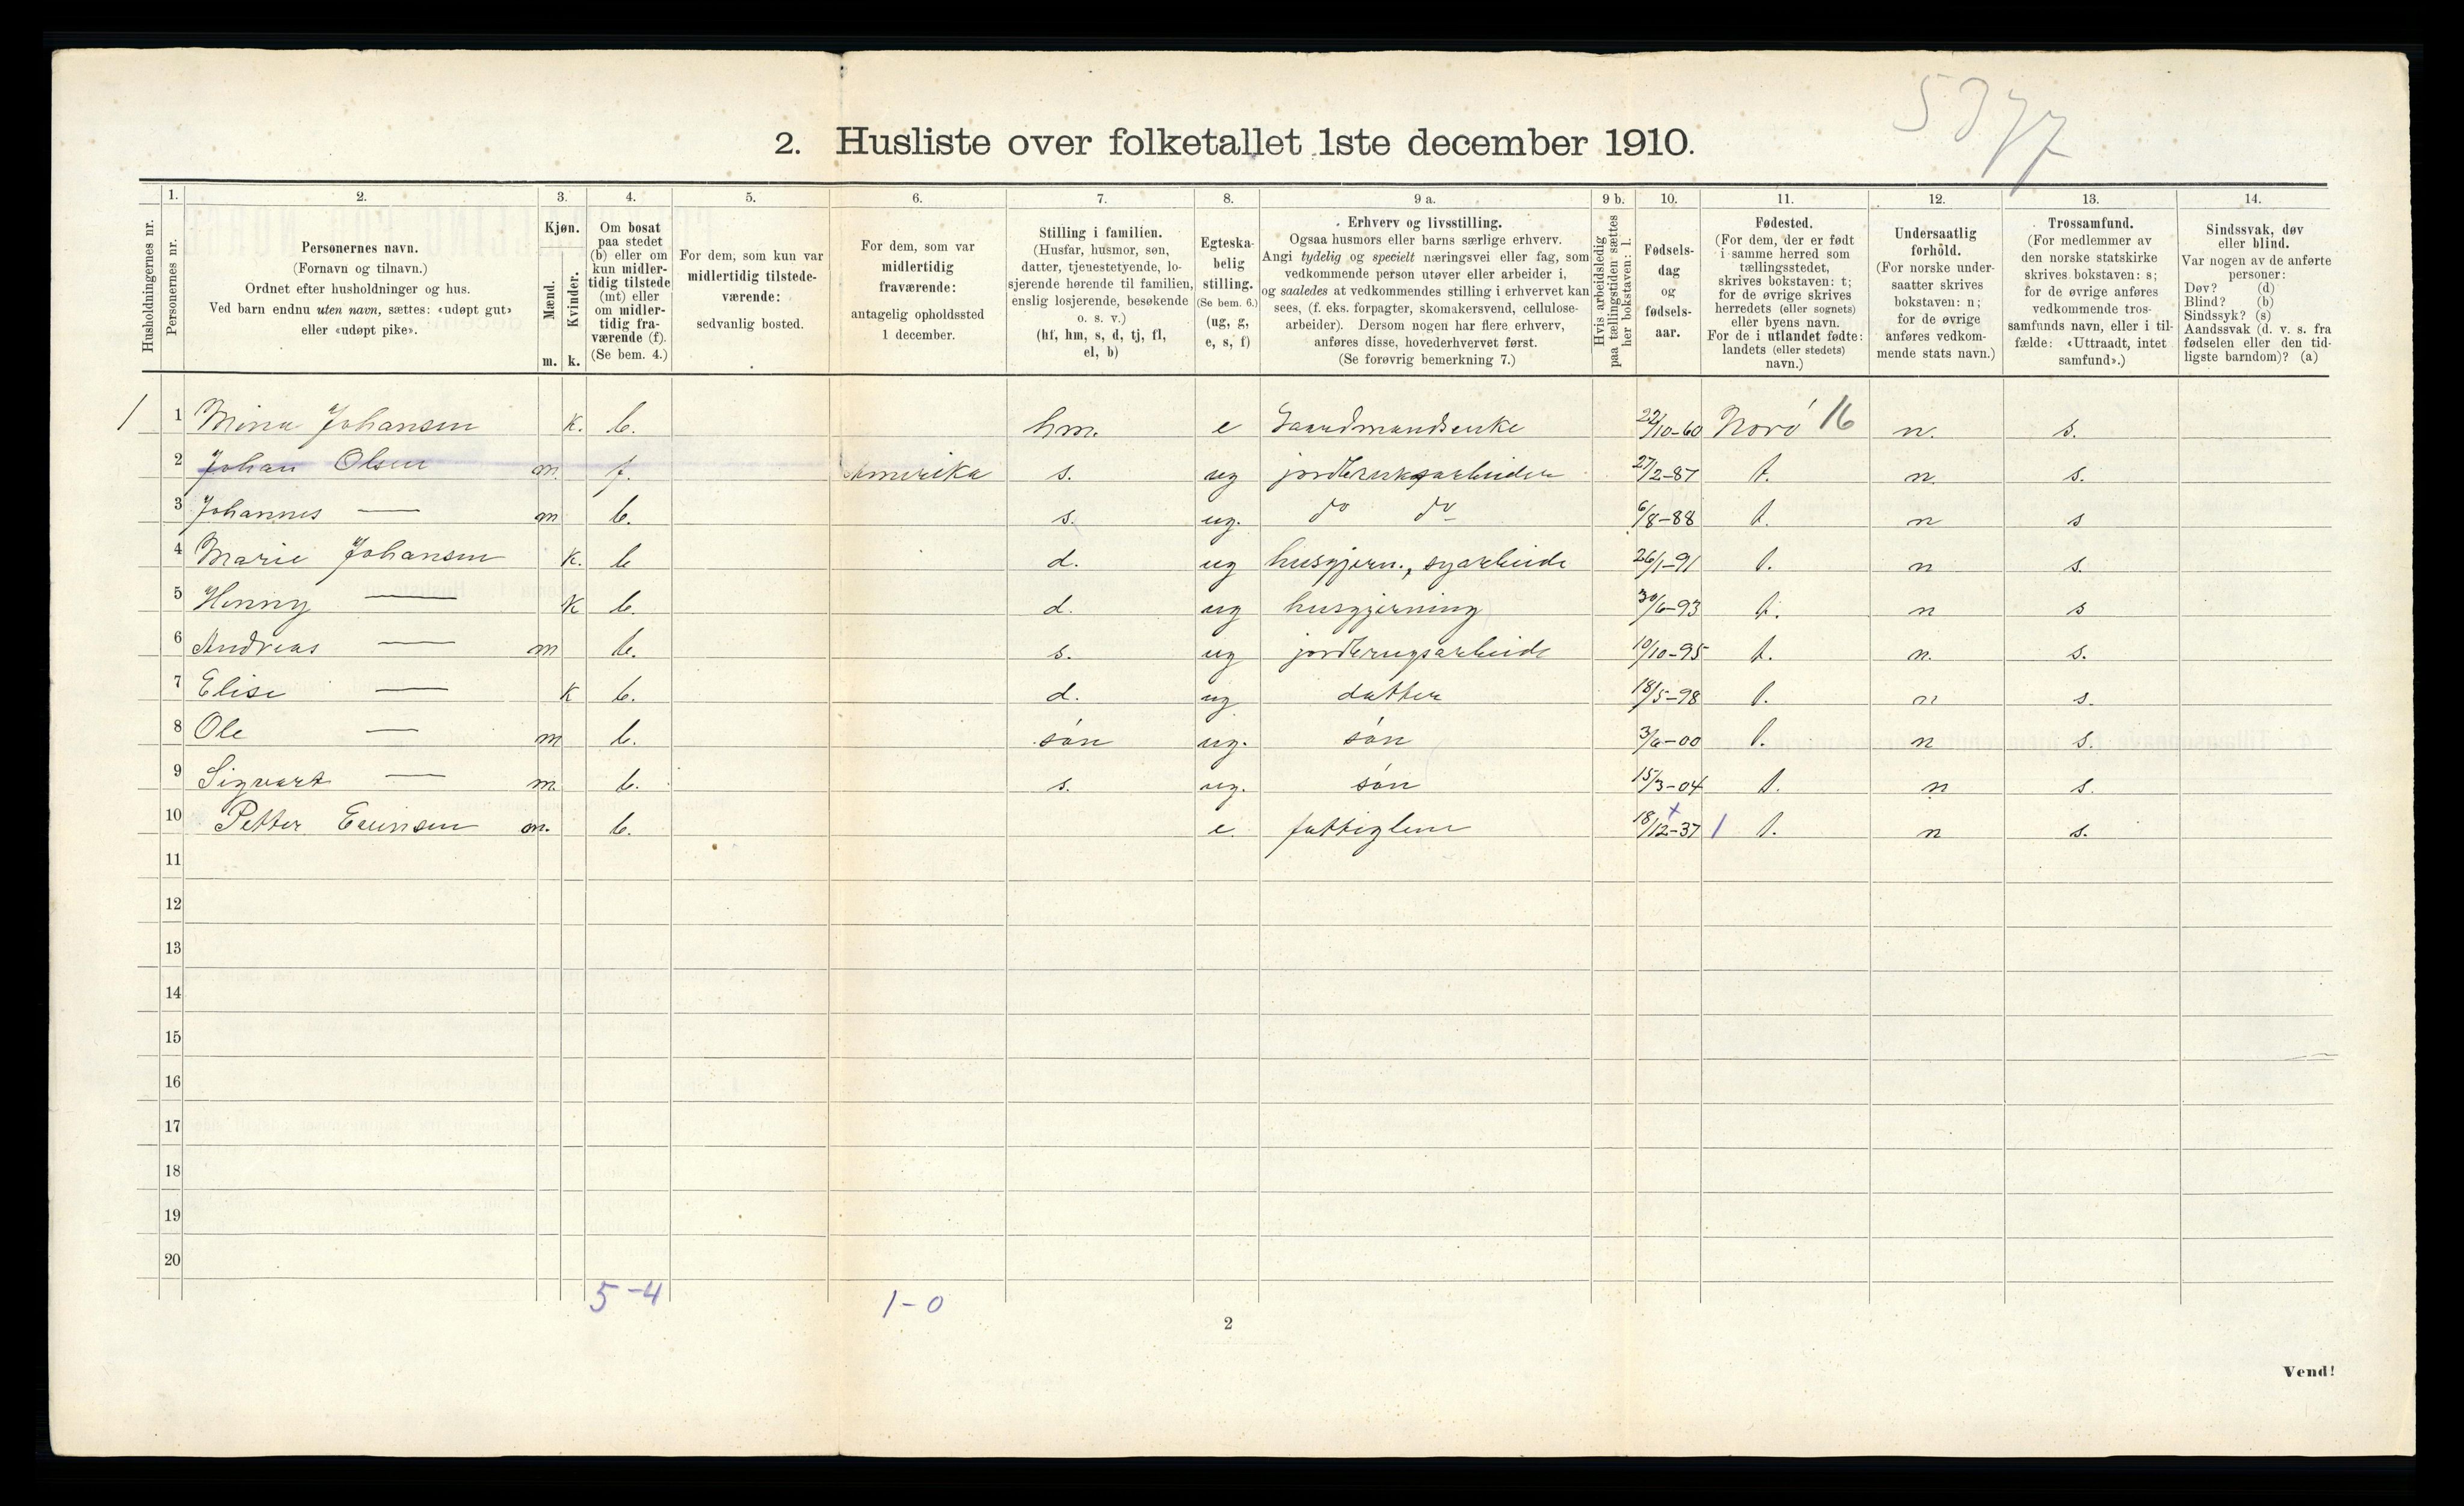 5377
2. Husliste over folketallet 1ste december 1910.
Husholdningernes nr.
1. Personernes nr.
2. Personernes navn. (Fornavn og tilnavn.) Ordnet efter husholdninger og hus. Ved barn endnu uten navn, sættes: «udøpt gut» eller «udøpt pike».
3. Kjøn. Mænd. m. Kvinder. k.
4. Om bosat paa stedet (b) eller om kun midlertidig tilstede (mt) eller om midlertidig fraværende (f). (Se bem. 4.)
5. For dem, som kun var midlertidig tilstedeværende: sedvanlig bosted.
6. For dem, som var midlertidig fraværende: antagelig opholdssted 1 december.
7. Stilling i familien. (Husfar, husmor, søn, datter, tjenestetyende, losjerende hørende til familien, enslig losjerende, besøkende o. s. v.) (hf, hm, s, d, tj, fl, el, b)
8. Egteskabelig stilling. (Se bem. 6.) (ug, g, e, s, f)
9 a. Erhverv og livsstilling. Ogsaa husmors eller barns særlige erhverv. Angi tydelig og specielt næringsvei eller fag, som vedkommende person utøver eller arbeider i, og saaledes at vedkommendes stilling i erhvervet kan sees, (f. eks. forpagter, skomakersvend, cellulosearbeider). Dersom nogen har flere erhverv, anføres disse, hovederhvervet først. (Se forøvrig bemerkning 7.)
9 b. Hvis arbeidsledig paa tællingstiden sættes her bokstaven: l.
10. Fødselsdag og fødselsaar.
11. Fødested. (For dem, der er født i samme herred som tællingsstedet, skrives bokstaven: t; for de øvrige skrives herredets (eller sognets) eller byens navn. For de i utlandet fødte: landets (eller stedets) navn.)
12. Undersaatlig forhold. (For norske undersaatter skrives bokstaven: n; for de øvrige anføres vedkommende stats navn.)
13. Trossamfund. (For medlemmer av den norske statskirke skrives bokstaven: s; for de øvrige anføres vedkommende trossamfunds navn, eller i tilfælde: «Uttraadt, intet samfund».)
14. Sindssvak, døv eller blind. Var nogen av de anførte personer: Døv? (d) Blind? (b) Sindssyk? (s) Aandssvak (d. v. s. fra fødselen eller den tidligste barndom)? (a)
1 1 Mina Johansen k. b. hm. e Gaardmandsenke 22/10-60 Norö 16 n. s.
2 Johan Olsen m. f. Amerika s. ug jordbruksarbeider 27/2-87 t. n. s.
3 Johannes — m b. s. ug. do do 6/8-88 t. n s
4 Marie Johansen k. b d. ug husgjern., syarbeide 26/1-91 t. n s.
5 Henny — k b. d. ug husgjerning 30/6-93 t. n s
6 Andreas — m b. s. ug jordbrugsarbeide 10/10-95 t. n. s.
7 Elise — k b. d. ug datter 18/5-98 t. n s.
8 Ole — m b. søn ug. søn 3/6-00 t. n s.
9 Sigvart — m. b. s. ug. søn 15/3-04 t. n s.
10 Petter Ensen m. b. e. fattiglem 18/12-37 1 t. n s.
11
12
13
14
15
16
17
18
19
20
5-4 1-0
2
Vend!